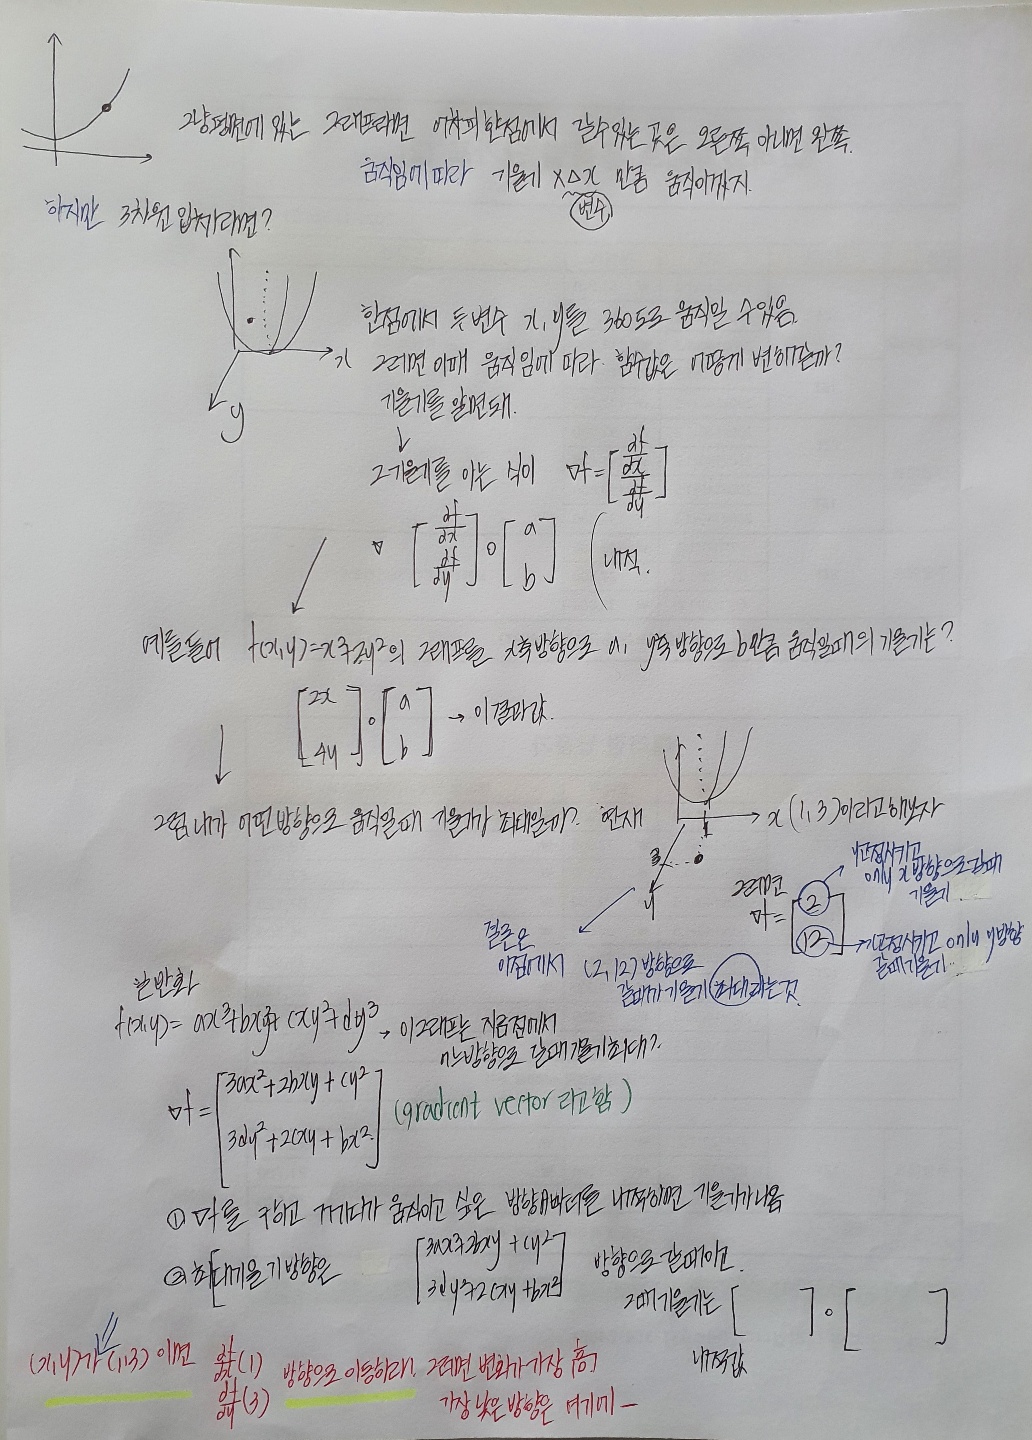 그냥 평면에 있는 그래프라면 어차피 한점에서 갈수있는 곳은 오른쪽 아니면 왼쪽.
움직임에 따라 기울기 x△x 만큼 움직이겠지.
변수
하지만 3차원 입체라면?
한점에서 두 변수 x, y를 360도로 움직일 수 있음.
x
그러면 이때 움직임에 따라 함수값은 어떻게 변해갈까?
기울기를 알면돼.
y
그 기울기를 아는 식이 ▽f = [df/dx df/dy]
▽ [df/dx df/dy] ∘ [a b] (내적.
예를들어 f(x,y)=x²+2y²의 그래프를 x축방향으로 a, y축 방향으로 b만큼 움직일때의 기울기는?
[2x 4y] ∘ [a b] → 이 결과값.
그럼 내가 어떤방향으로 움직일때 기울기가 최대일까? 현재 x (1,3)이라고 해보자
1
3
y
y고정시키고
only x 방향으로 갈때
기울기
그러면
▽f = [2 12]
x고정시키고 only y방향
갈때 기울기..
결론은
이점에서 (2,12) 방향으로
갈때가 기울기 최대라는것.
일반화
f(x,y) = ax³+bx²y+cxy²+dy³ → 이 그래프는 지금점에서
어느방향으로 갈때 기울기 최대?
▽f = [3ax²+2bxy+cy² 3dy²+2cxy+bx²] (gradient vector 라고함)
① ▽f를 구하고 거기다가 움직이고 싶은 방향벡터를 내적하면 기울기가 나옴
② 최대기울기 방향은 [3ax²+2bxy+cy² 3dy²+2cxy+bx²] 방향으로 갈때이고.
그때 기울기는 [ ] ∘ [ ]
내적값
(x,y)가 (1,3) 이면 df/dx(1) df/dy(3) 방향으로 이동하라. 그러면 변화가 가장 高
가장 낮은 방향은 여기에 −